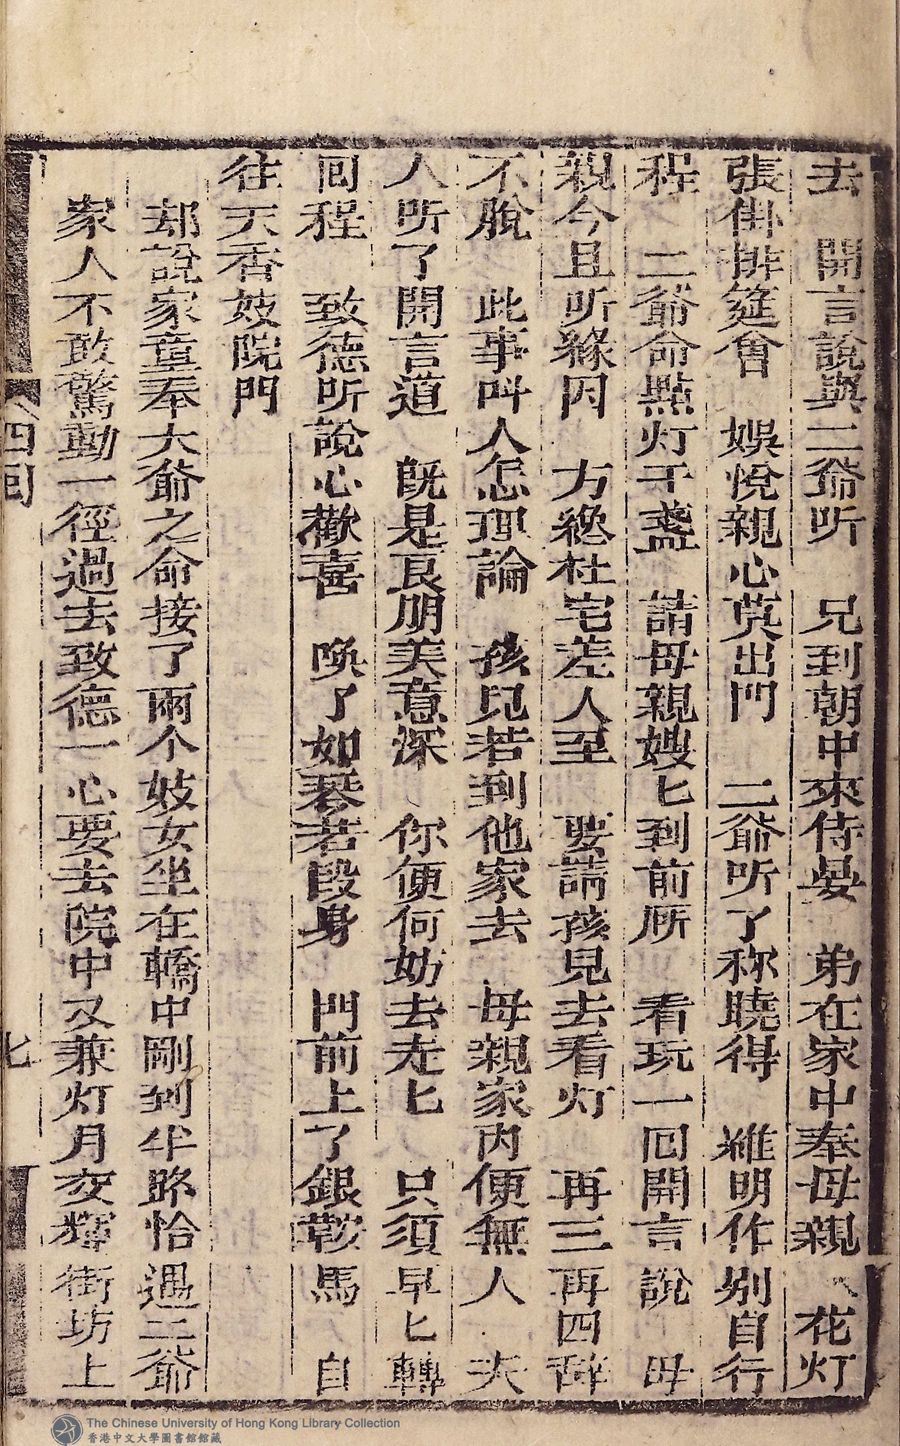 去　開言說與二爺听　兄到朝中來侍宴　弟在家中奉母親　花灯
張掛排筵會　娛悅親心莫出門　二爺听了称曉得　維明作别自行
程　二爺命點灯千盞　請母親嫂匕到前所　看玩一囘開言說　母
親今且听緣因　方纔杜宅差人至　要請孩兒去看灯　再三再四辞
不脫　此事叫人怎理論　孩兒若到他家去　母親家內便無人　夫
人听了開言道　既是良朋美意深　你便何妨去走匕　只須早匕轉
囘程　致德听說心歡喜　喚了如琴若段身　門前上了銀鞍馬　自
往天香妓院門
却說家童奉大爺之命接了兩个妓女坐在轎中剛到半路恰遇二爺
家人不敢驚動一徑過去致德一心要去院中又兼灯月交輝街坊上
四囘
七
The Chinese University of Hong Kong Library Collection
香港中文大學圖書館館藏